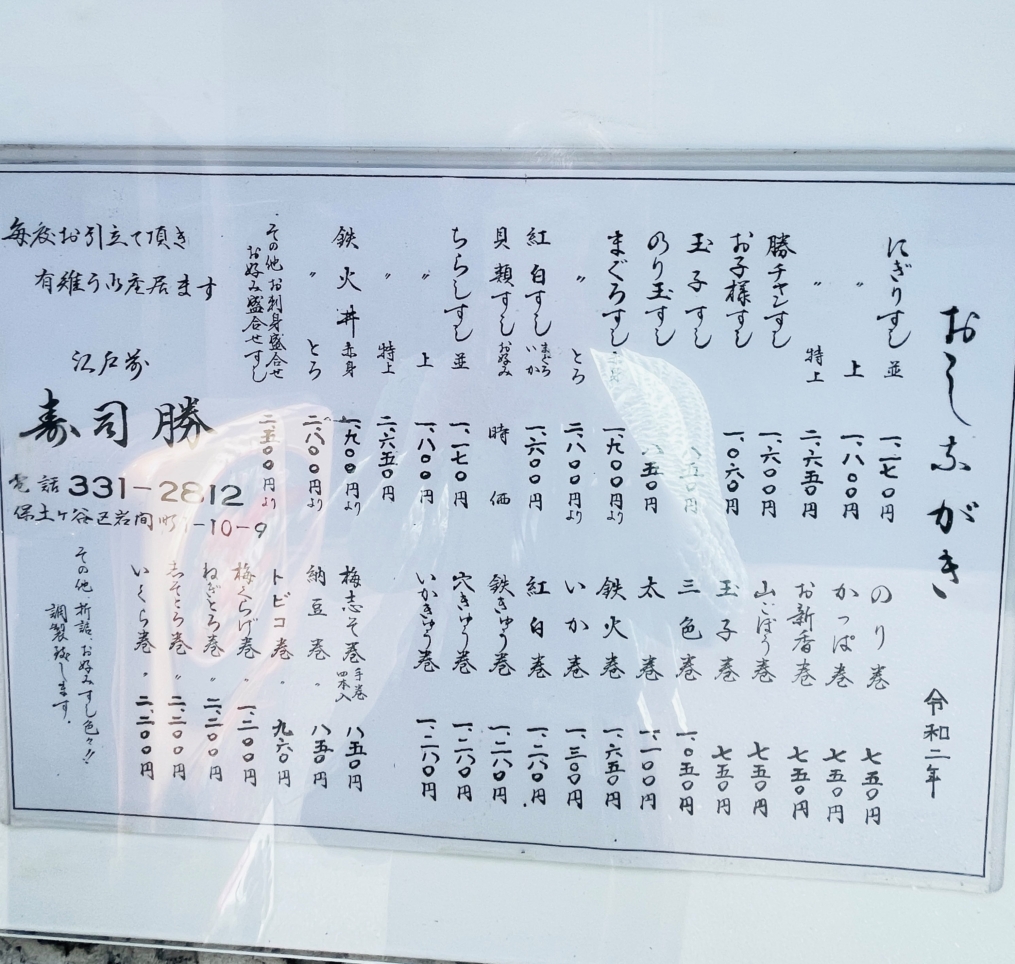 おしながき
令和二年
にぎりすし 並 一、一七〇円
〃 上 一、八〇〇円
〃 特上 二、六五〇円
勝チャンすし 一、六〇〇円
お子様すし 一、〇六〇円
玉子すし 八五〇円
のり玉すし 八五〇円
まぐろすし 一、九〇〇円より
〃 とろ 二、八〇〇円より
紅白すし まぐろ いか 一、六〇〇円
貝類すし お好み 時価
ちらしすし 並 一、一七〇円
〃 上 一、八〇〇円
〃 特上 二、六五〇円
鉄火丼 赤身 一、九〇〇円より
〃 とろ 二、八〇〇円より
その他お刺身盛合せ
お好み盛合せすし 二、五〇〇円より
のり巻 七五〇円
かっぱ巻 七五〇円
お新香巻 七五〇円
山ごぼう巻 七五〇円
玉子巻 七五〇円
三色巻 一、〇五〇円
太巻 一、一〇〇円
鉄火巻 一、六五〇円
いか巻 一、三〇〇円
紅白巻 一、二八〇円
鉄きゅう巻 一、二八〇円
穴きゅう巻 一、二八〇円
いかきゅう巻 一、二八〇円
梅志そ巻 手巻四本入 八五〇円
納豆巻 〃 八五〇円
トビコ巻 〃 九六〇円
梅くらげ巻 〃 一、二〇〇円
ねぎとろ巻 〃 二、二〇〇円
志そとろ巻 〃 二、二〇〇円
いくら巻 〃 二、二〇〇円
毎度お引立て頂き
有難う御座居ます
江戸前
寿司勝
電話331-2812
保土ヶ谷区岩間町1-10-9
その他、折詰、お好みすし色々!!
調製致します。